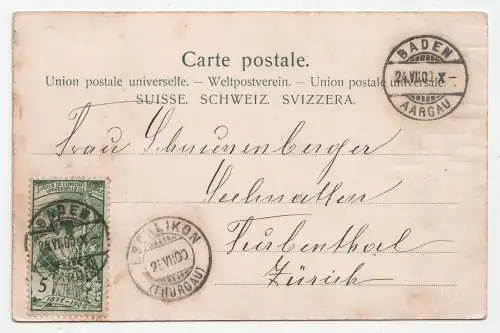 Carte postale.
Union postale universelle. — Weltpostverein. — Union postale universale.
SUISSE. SCHWEIZ. SVIZZERA.
BADEN
24.VII.00. X–
AARGAU
Frau Schnurrenberger
Seelmatten
Turbenthal
Zürich
BADEN
24.VII.00
5
1875–1900
ESCHLIKON
25.VII.00
(THURGAU)